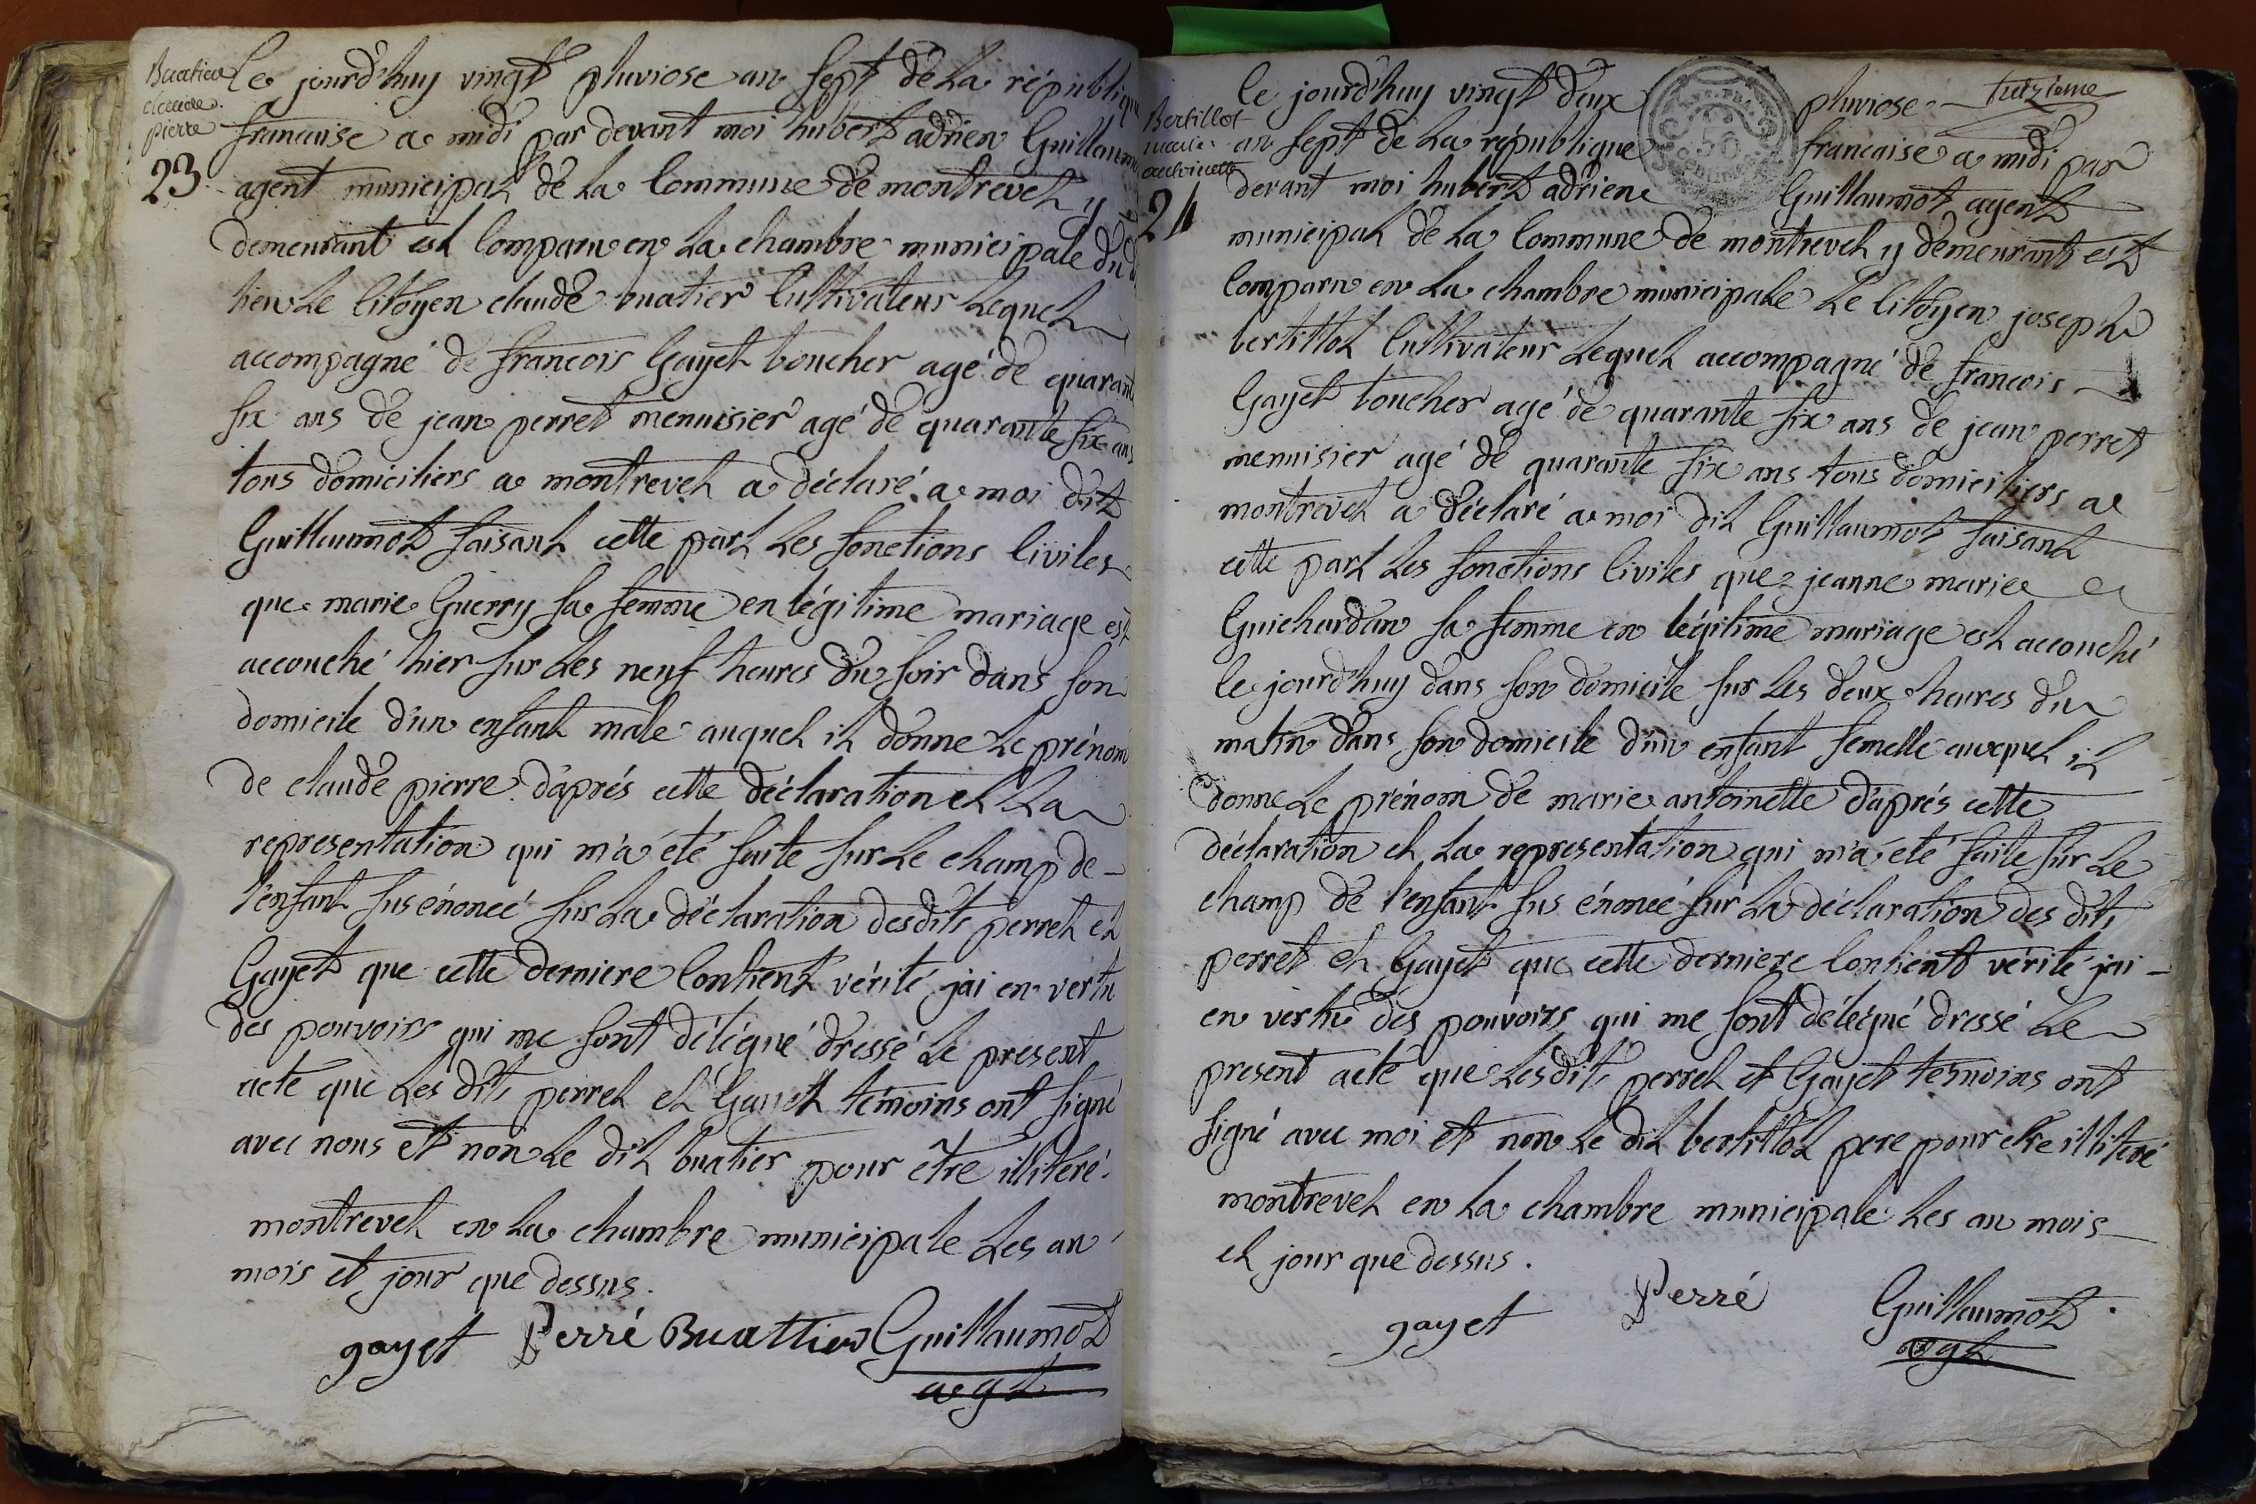 Buatier
claude
pierre
23
Le jourd'huy vingt pluviose an sept de la république
francaise a midi par devant moi hubert adrien Guillaumot
agent municipal de la Commune de montrevel y
demeurant est Comparu en la chambre municipale du dit
lieu le Citoyen claude buatier Cultivateur lequel
accompagné de francois Gayet boucher agé de quarante
six ans de jean perret menuisier agé de quarante six ans
tous domiciliers a montrevel a déclaré a moi dit
Guillaumot faisant cette part les fonctions Civiles
que marie Guerry sa femme en légitime mariage est
accouché hier sur les neuf heures du soir dans son
domicile d'un enfant male auquel il donne le prénom
de claude pierre d'aprés cette déclaration et la
representation qui m'a été faite sur le champ de
l'enfant sus énoncé sur la déclaration desdits perret et
Gayet que cette derniere Contient vérité j'ai en vertu
des pouvoirs qui me sont délégué dressé le present
acte que les dits perret et Gayet témoins ont signé
avec nous et non le dit buatier pour être illiteré.
montrevel en la chambre municipale les an
mois et jour que dessus.
gayet Perré Buattier Guillaumot
agt
Bertillot
marie
antoinette
24
le jourd'huy vingt deux pluviose
an sept de la république francaise a midi par
devant moi hubert adriene Guillaumot agent
municipal de la Commune de montrevel y demeurant est
Comparu en la chambre municipale le Citoyen joseph
bertillot Cultivateur lequel accompagné de francois
Gayet boucher agé de quarante six ans de jean perret
menuisier agé de quarante six ans tous domiciliers a
montrevel a déclaré a moi dit Guillaumot faisant
cette part les fonctions Civiles que jeanne marie
Guichardan sa femme en légitime mariage est accouché
le jourd'huy dans son domicile sur les deux heures du
matin dans son domicile d'un enfant femelle auxquel il
donne le prénom de marie antoinette d'aprés cette
déclaration et la representation qui m'a été faite sur le
champ de l'enfant sus énoncé sur la déclaration des dits
perret et Gayet que cette derniere Contient vérité j'ai
en vertu des pouvoirs qui me sont délégué dressé le
present acte que lesdits perret et Gayet temoins ont
signé avec moi et non le dit bertillot pere pour etre illiteré
montrevel en la chambre municipale les an mois
et jour que dessus.
gayet Perré Guillaumot
agt